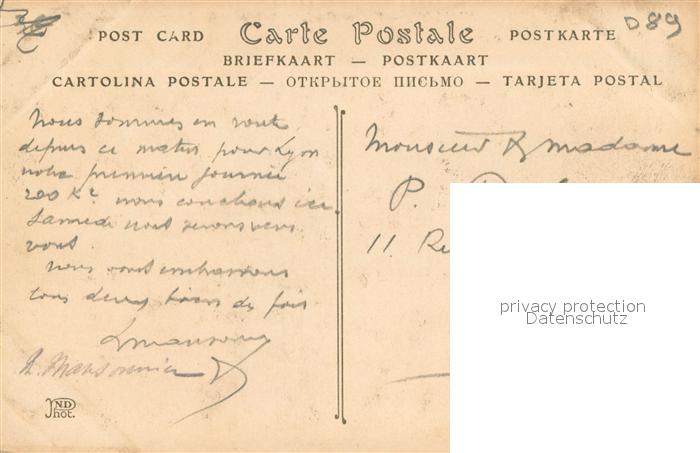 D89
POST CARD Carte Postale POSTKARTE
BRIEFKAART — POSTKAART
CARTOLINA POSTALE — ОТКРЫТОЕ ПИСЬМО — TARJETA POSTAL
Nous sommes en route
depuis ce matin pour Lyon
notre première journée
200 K^s nous couchons ici
Samedi nous serons vers
vous.
nous vous embrassons
tous deux bien des fois
Monsieur & Madame
P.
11 Ru
ND
Phot.
privacy protection
Datenschutz